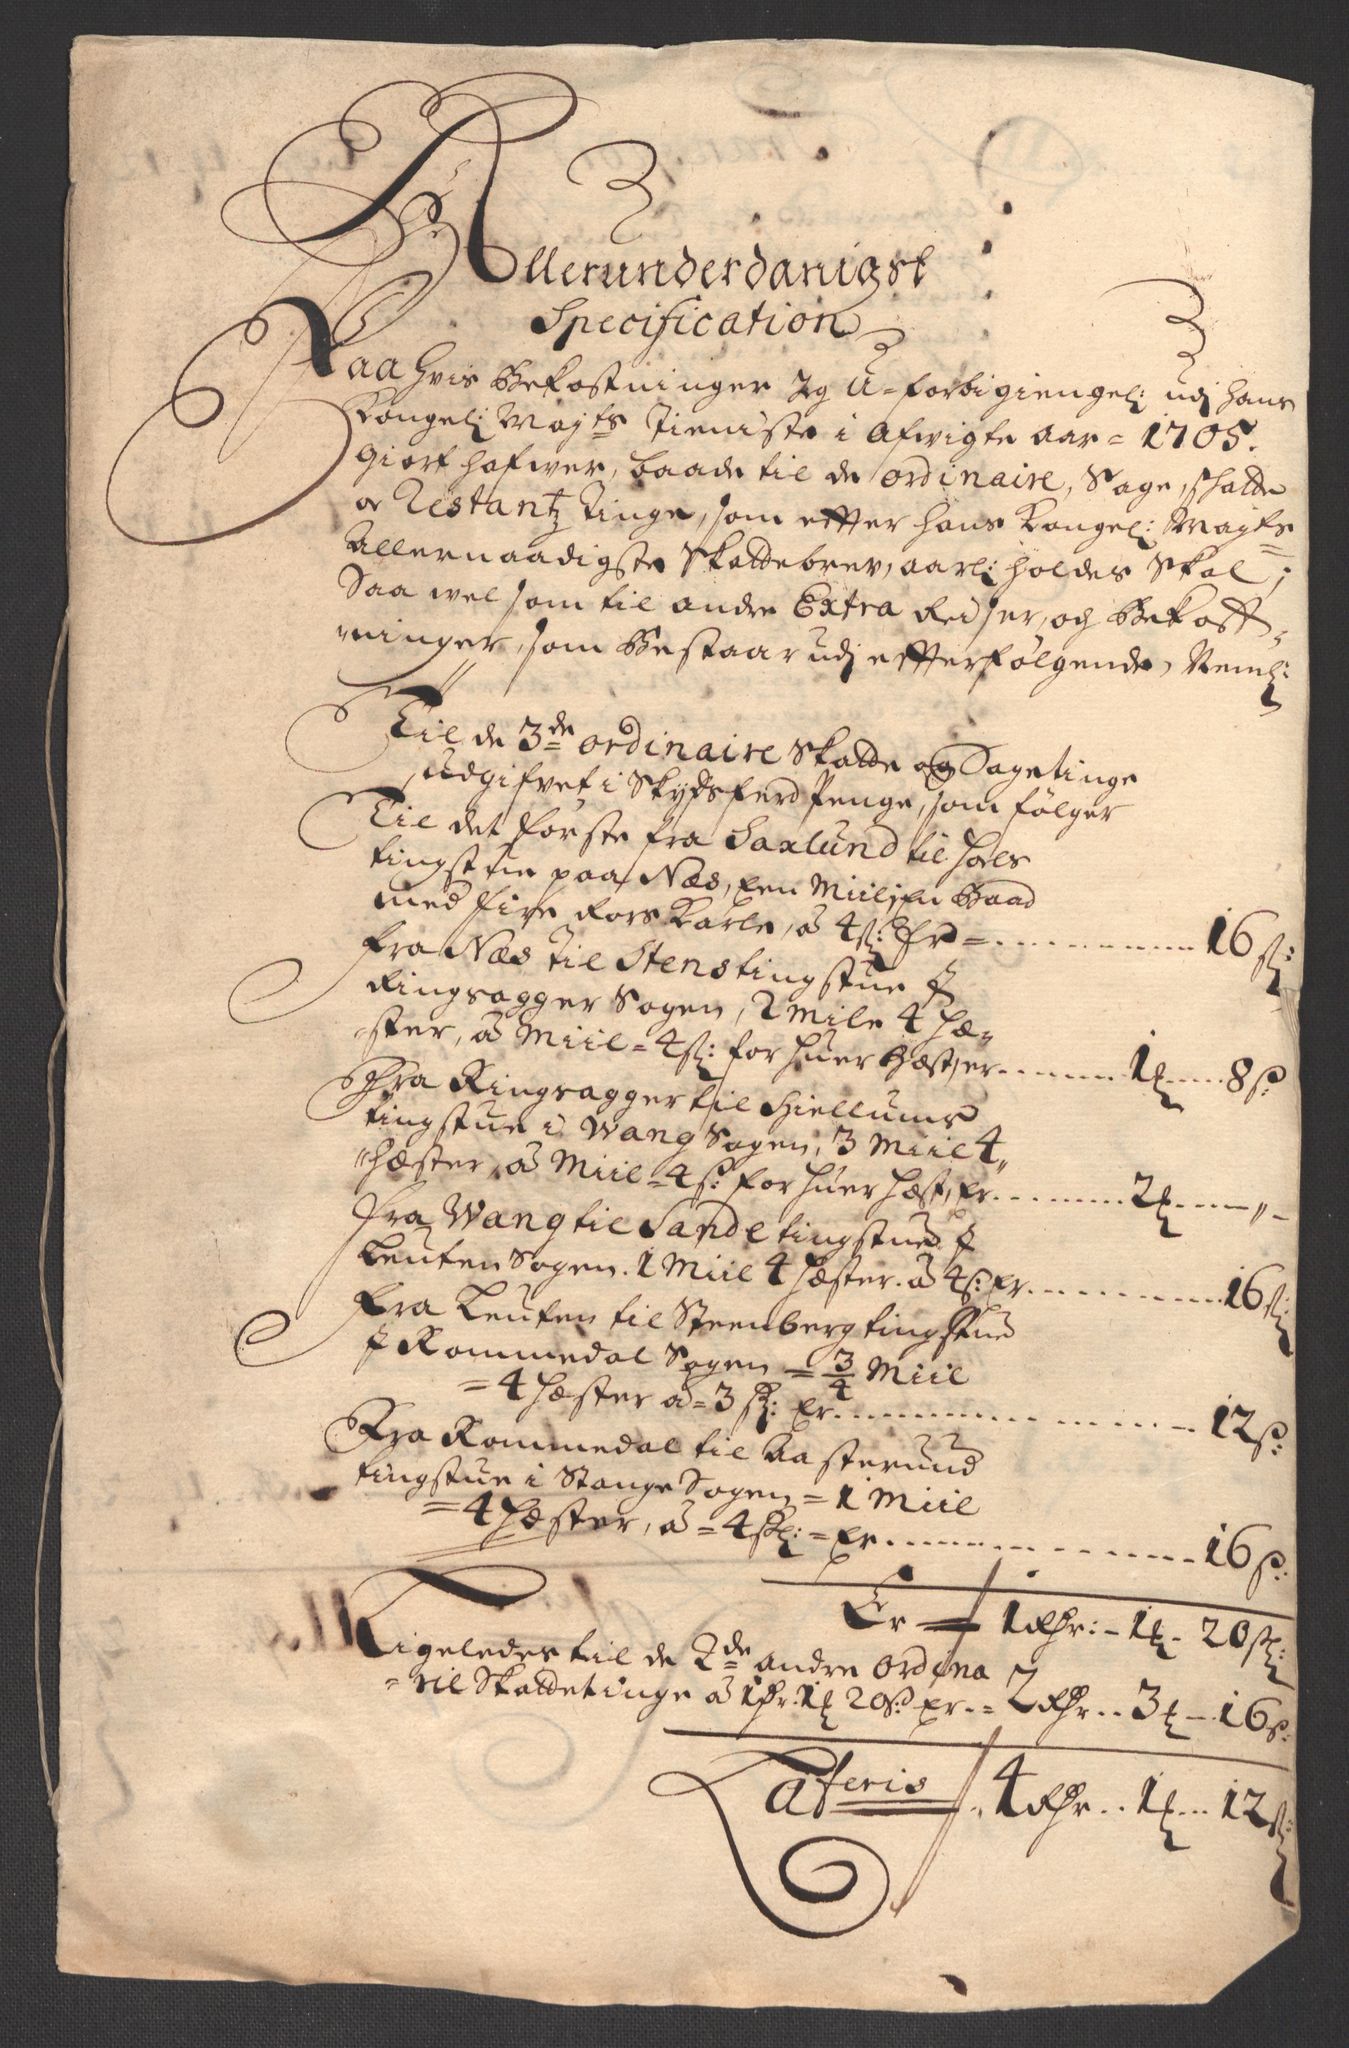 Allerunderdanigst
Specification
Paa hvis Bekostninger Jeg U-forbigiengel: udj hans
Kongel: Mayts Tieniste i afwigte aar = 1705.
giort hafwer, baade til de ordinaire, Sage, schatte
oc Restantz Tinge, som effter hans Kongel: Mayts
Allernaadigste Skattebrev, aarl: holdes skal;
Saa wel som til andre Extra Reiser, og Bekost-
ninger, som Bestaar udj effterfølgende, Neml:
Til de 3de ordinaire Skatte og Sagetinge
udgifvet i Skydsferd Penge, som følger
Til det første fra Saxlund til Hols
tingstue paa Næs, en Miil, en Baad
med fire Rors Karle, á 4 sk: Er = 16 sk:
fra Næs til Stens tingstue J
Ringsagger Sogen, 2 Mile 4 hæ-
ster, á Miil = 4 sk: for huer hæst, er 1 mk 8 s:
Fra Ringsagger til Hiellums
tingstue i Wang Sogen, 3 Miil 4
hæster, á Miil = 4 s: for huer hæst, er 2 mk "
fra Wang til Sande tingstue J
Leuten Sogen. 1 Miil 4 hæster. á 4 s: er 16 sk:
fra Leuten til Steenberg tingstue
J Rommedal Sogen = 3/4 Miil
= 4 hæster á = 3 sk: er 12 s:
Fra Rommedal til Aasterud
tingstue i Stange Sogen = 1 Miil
= 4 hæster, á = 4 sk: = er 16 s:
Er 1 Rdr: - 1 mk - 20 sk:
Ligeledes til de 2de andre ordina
= ril Skattetinge á 1 Rdr: 1 mk 20 s: er = 2 Rdr 3 mk 16 s:
Lateris 4 Rdr 1 mk 12 sk: